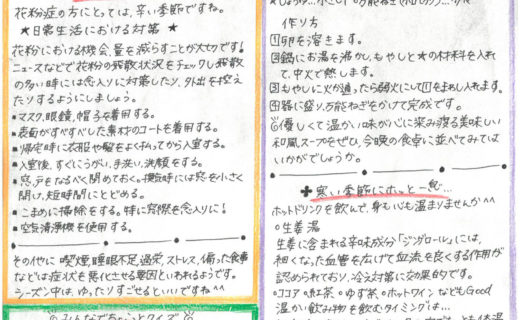 花粉症の方にとっては、辛い季節ですね。
★日常生活における対策★
花粉における機会、量を減らすことが大切です!
ニュースなどで花粉の飛散状況をチェックし飛散
の多い時には念入りに対策したり、外出を控え
たりするようにしましょう。
■マスク、眼鏡、帽子を着用する。
■表面がすべすべした素材のコートを着用する。
■帰宅時に衣服や髪をよく払ってから入室する。
■入室後、すぐにうがい、手洗い、洗顔をする。
■窓、戸をなるべく閉めておく。換気時には窓を小さく
開け、短時間にとどめる。
■こまめに掃除をする。特に窓際を念入りに!
■空気清浄機を使用する。
その他に喫煙、睡眠不足、過労、ストレス、偏った食事
などは症状を悪化させる要因といわれるようです。
シーズン中は、ゆったりすごせるといいですね^^
作り方
①卵を溶きます。
②鍋にお湯を沸かし、もやしと★の材料を入れ
て、中火で熱します。
③もやしに火が通ったら弱火にして①をまわし入れます。
④器に盛り万能ねぎをかけて完成です。
優しくて温かい味が心に染み渡る美味しい
和風スープをぜひ、今晩の食卓に並べてみては
いかがでしょうか。
✚寒い季節にホッと一息…
ホットドリンクを飲んで、身も心も温まりませんか^^
○生姜湯
生姜に含まれる辛味成分「ジンゲロール」には、
細くなった血管を広げて血流を良くする作用が
認められており、冷え対策に効果的です。
○ココア ○紅茶 ○ゆず茶 ○ホットワインなどもGood
温かい飲み物を飲むタイミングは…